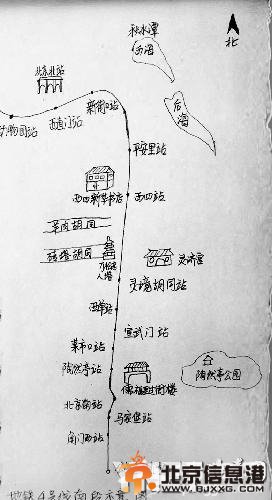 秋水潭
西海
北
北京北站
新街口站
后海
动物园站
西直门站
平安里站
西四新华书店
西四站
羊肉胡同
砖塔胡同
万松老人塔
灵济宫
灵境胡同站
西单站
宣武门站
菜市口站
陶然亭站
陶然亭公园
北京南站
马家堡站
角门西站
地铁4号线南段示意图
北京信息港
WWW.BJXXG.COM